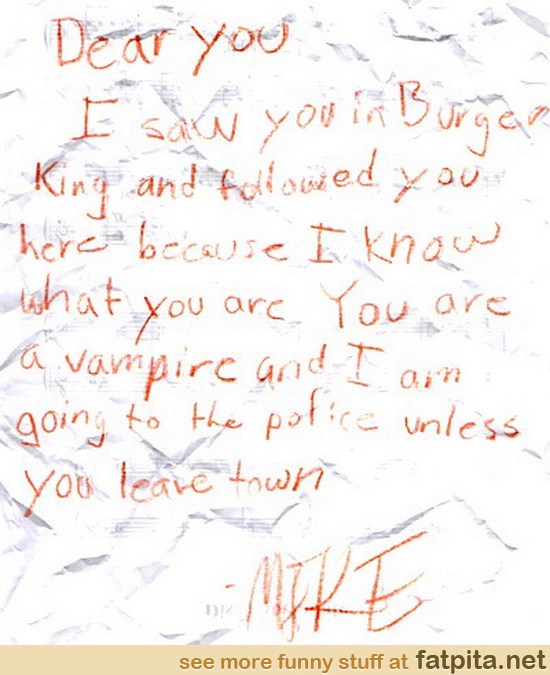 Dear you
I saw you in Burger
King and followed you
here because I know
what you are You are
a vampire and I am
going to the police unless
you leave town
-MIKE
see more funny stuff at fatpita.net